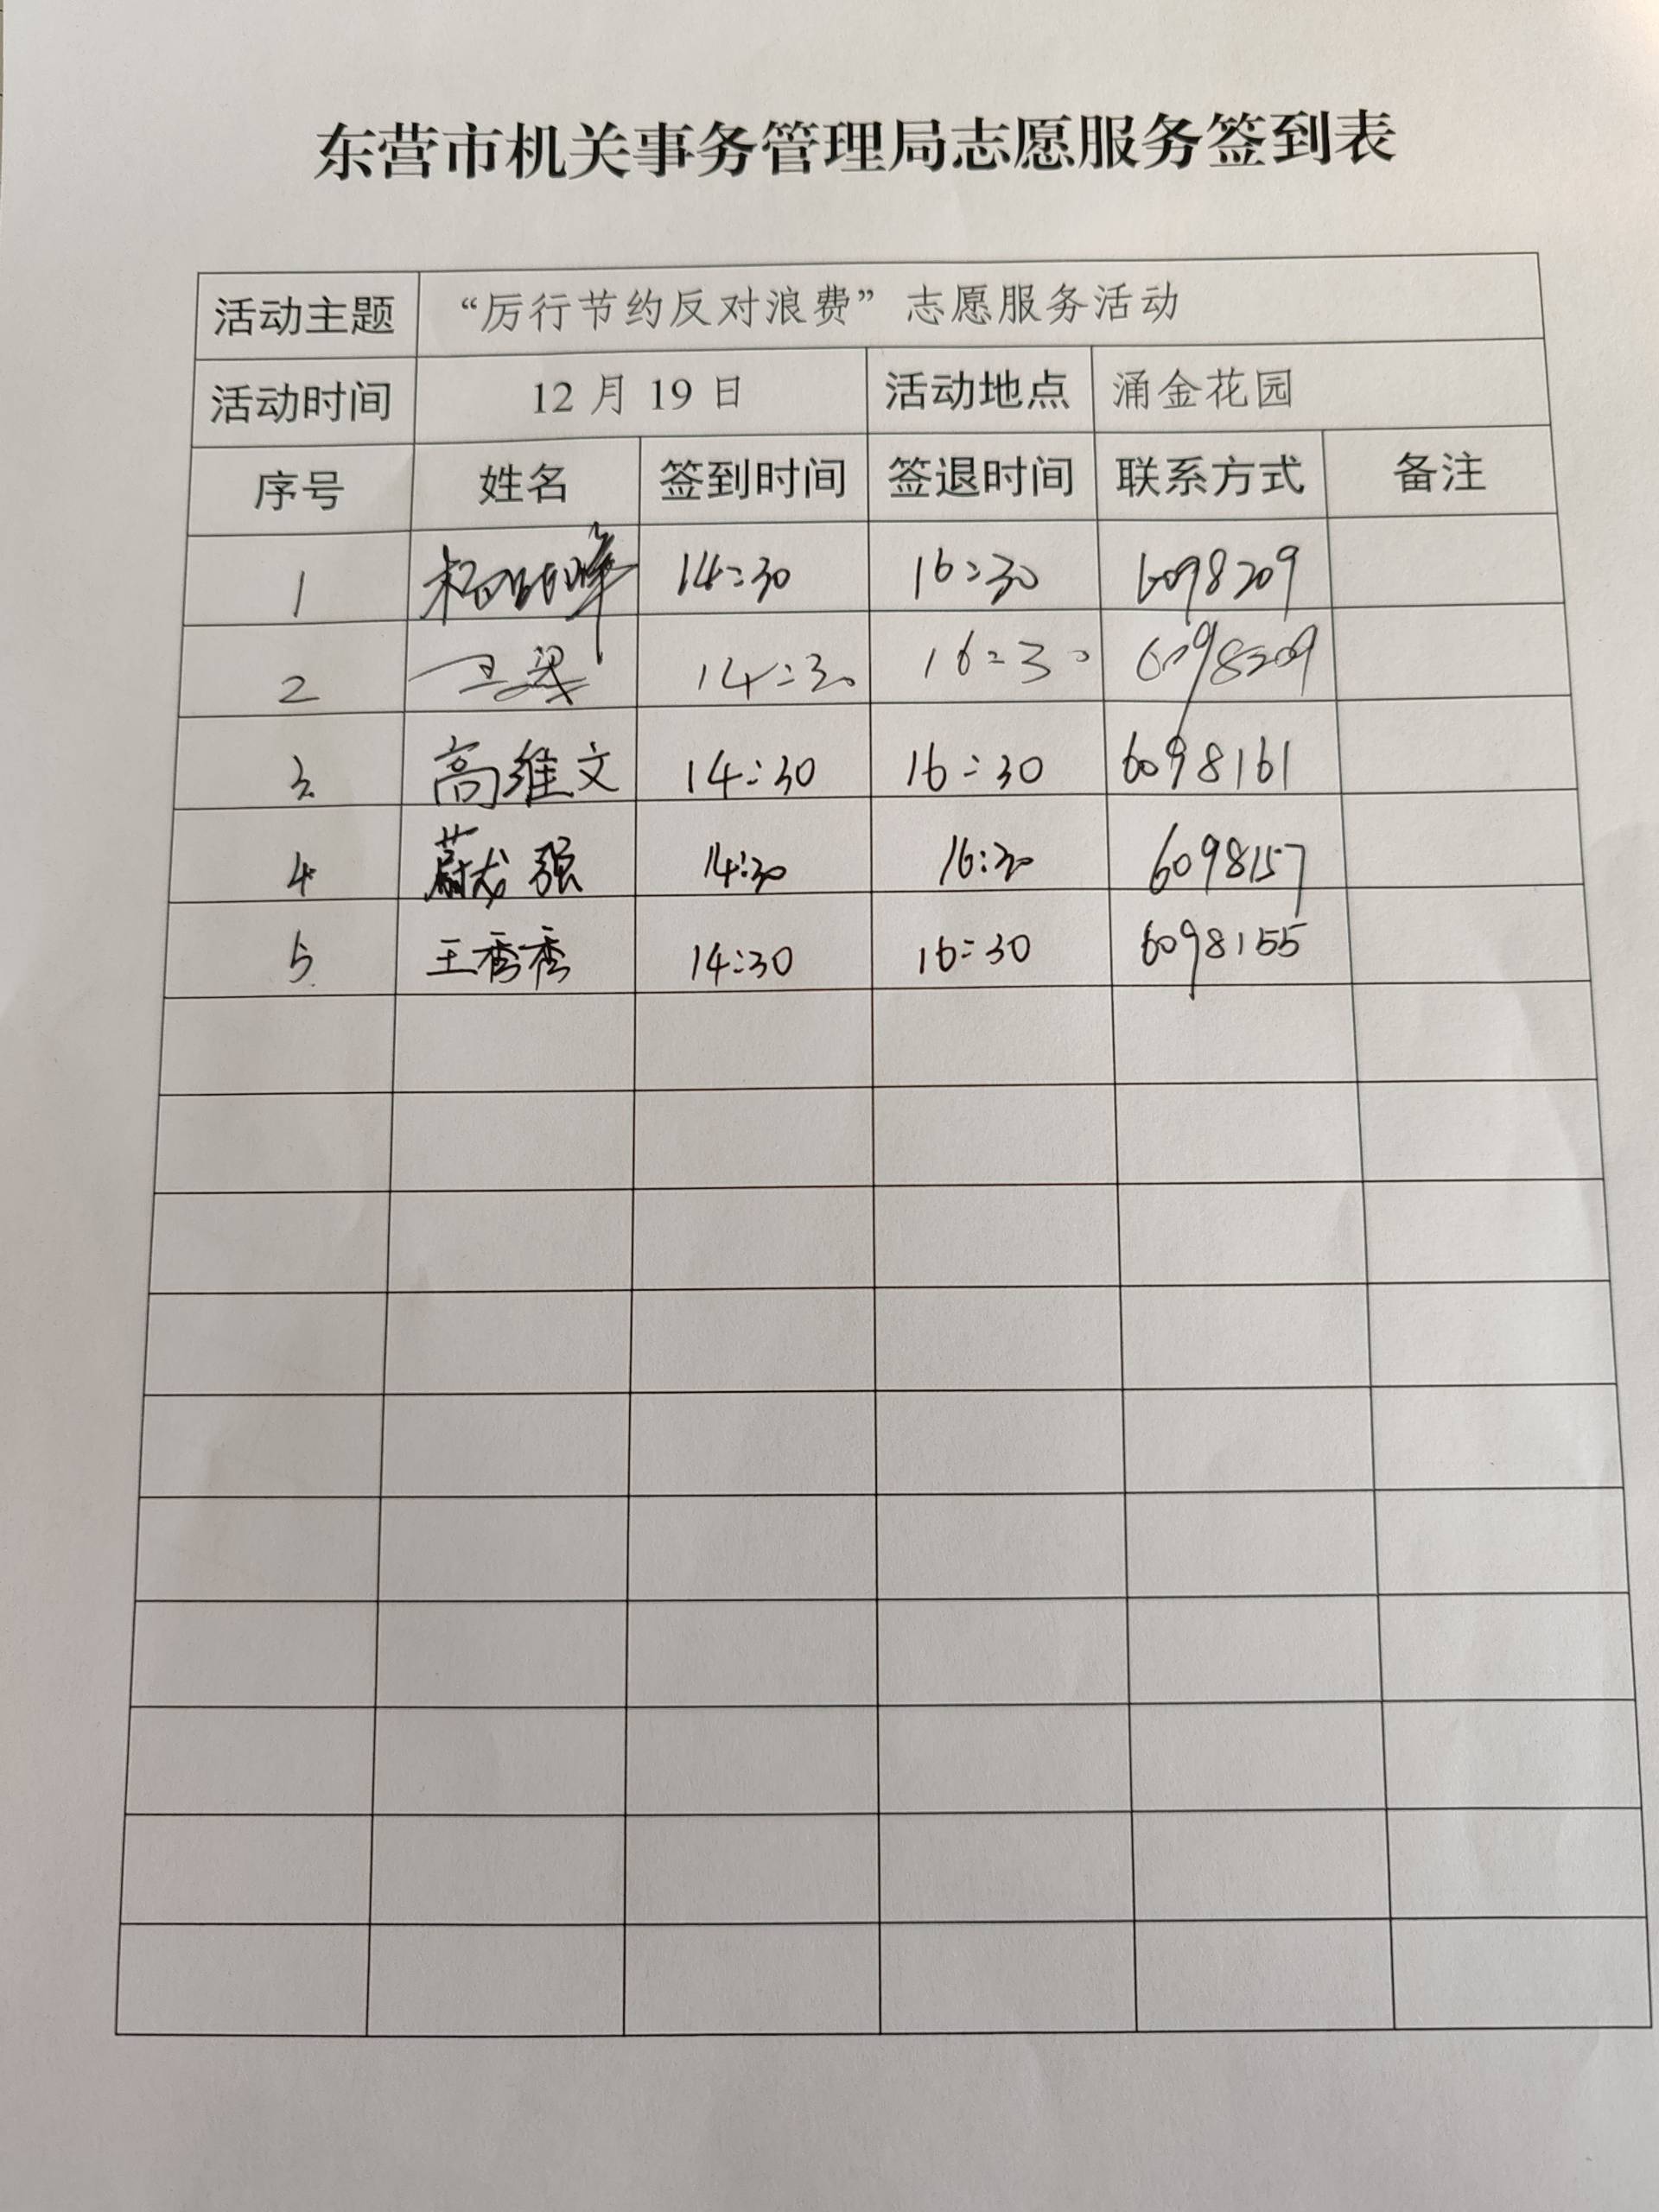 东营市机关事务管理局志愿服务签到表
活动主题 “厉行节约反对浪费”志愿服务活动
活动时间 12月19日 活动地点 涌金花园
序号 姓名 签到时间 签退时间 联系方式 备注
1 14:30 16:30 6098209
2 14:30 16:30 6098209
3 高维文 14:30 16:30 6098161
4 强 14:30 16:30 6098157
5 王秀秀 14:30 16:30 6098155